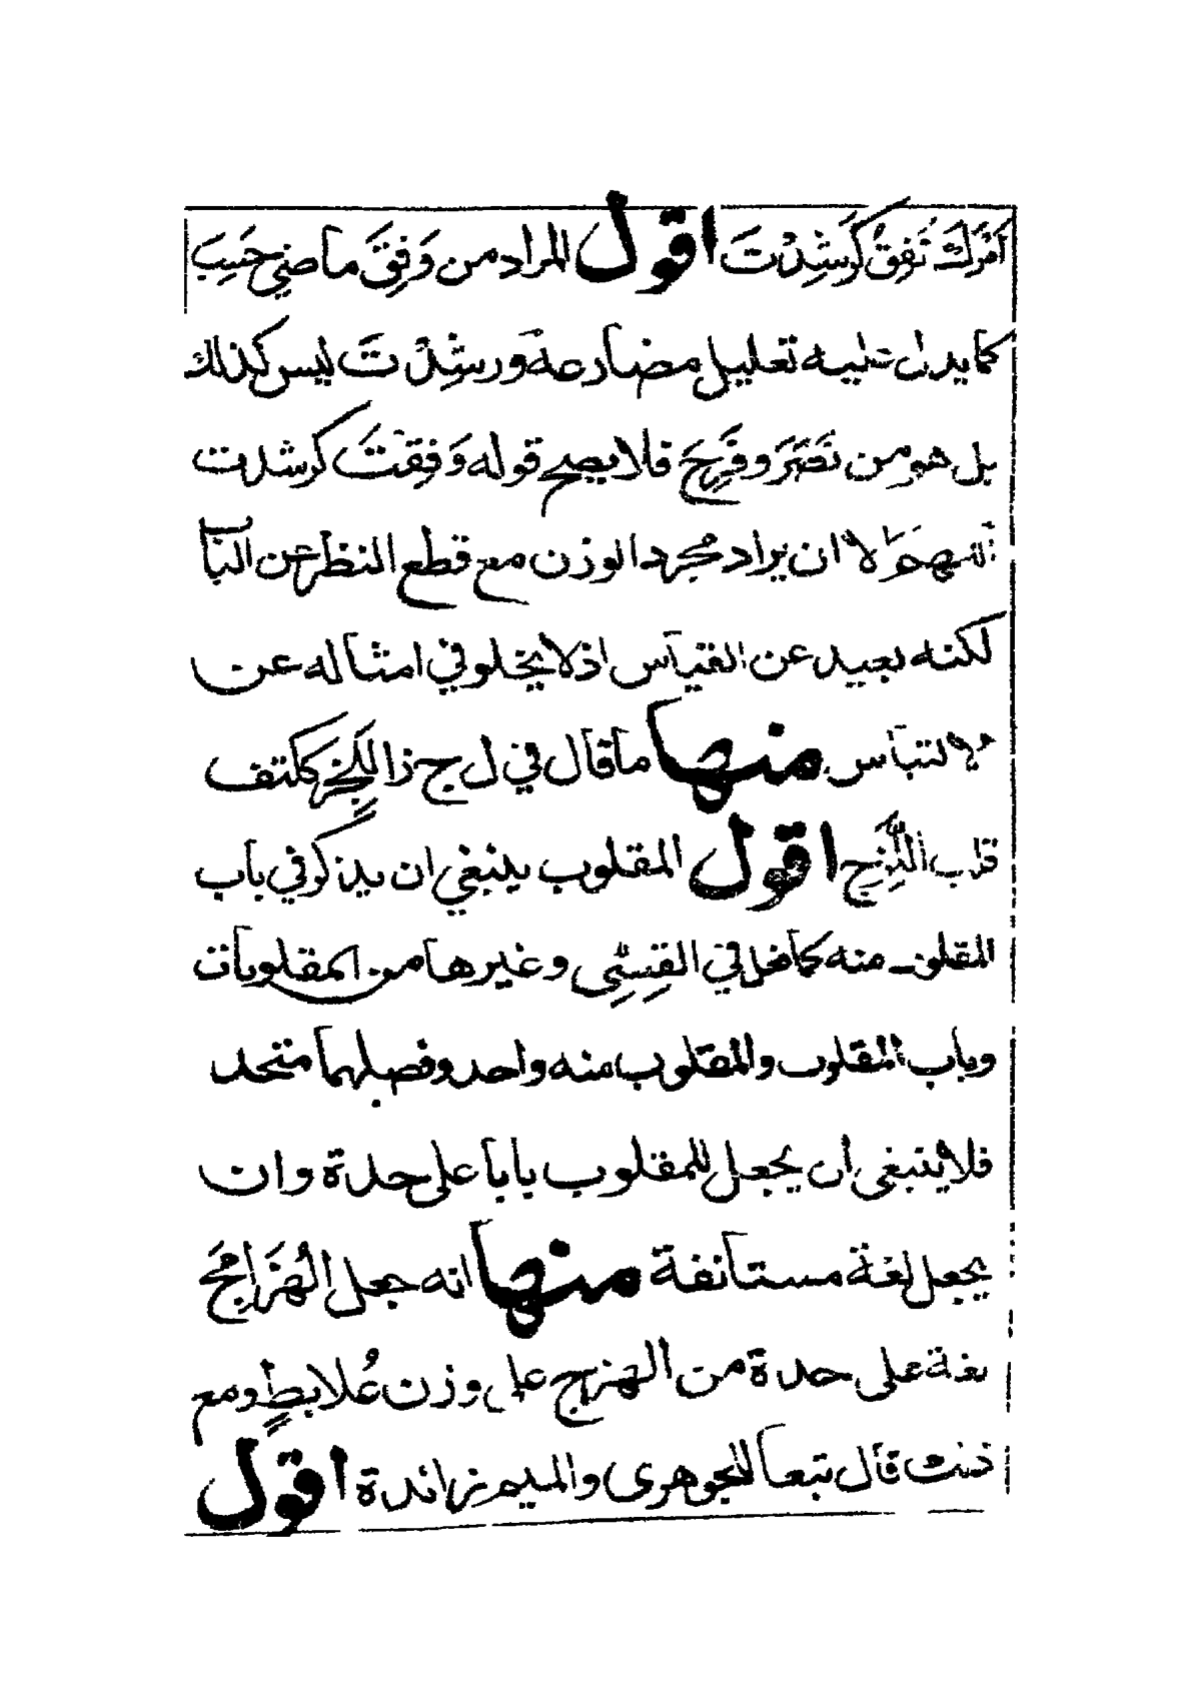 اَمْرَكَ تَفِقُ كَرَشِدْتَ اقول المراد من وَفِقَ ماضي حَسِبَ
كما يدل عليه تعليل مضارعه ورشِدْتَ ليس كذلك
بل هو من نَصَرَ وفَرِحَ فلا يصح قوله وَفِقْتَ كرشدت
اللهم الا ان يراد مجرد الوزن مع قطع النظر عن الباب
لكنه بعيد عن القياس اذ لا يخلو في امثاله عن
الالتباس منها ما قال في ل ج ز اللَّجِزُ ككتف
قلب اللَّزِج اقول المقلوب ينبغي ان يذكر في باب
المقلوب منه كما فعل في القِسِّى وغيرها من المقلوبات
وباب المقلوب والمقلوب منه واحد وفصلهما متحد
فلا ينبغى ان يجعل للمقلوب بابا على حدة وان
يجعل لغة مستانفة منها انه جعل الهُزَامِجَ
لغة على حدة من الهزج على وزن عُلابِطٍ ومع
ذلك قال تبعا للجوهرى والميم زائدة اقول